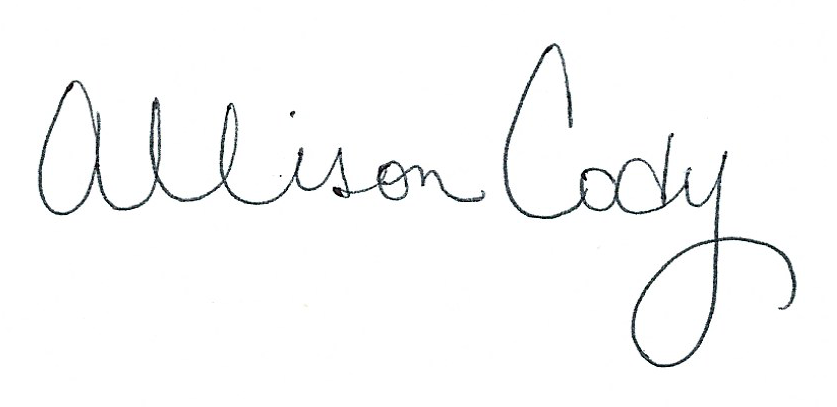 Allison Cody